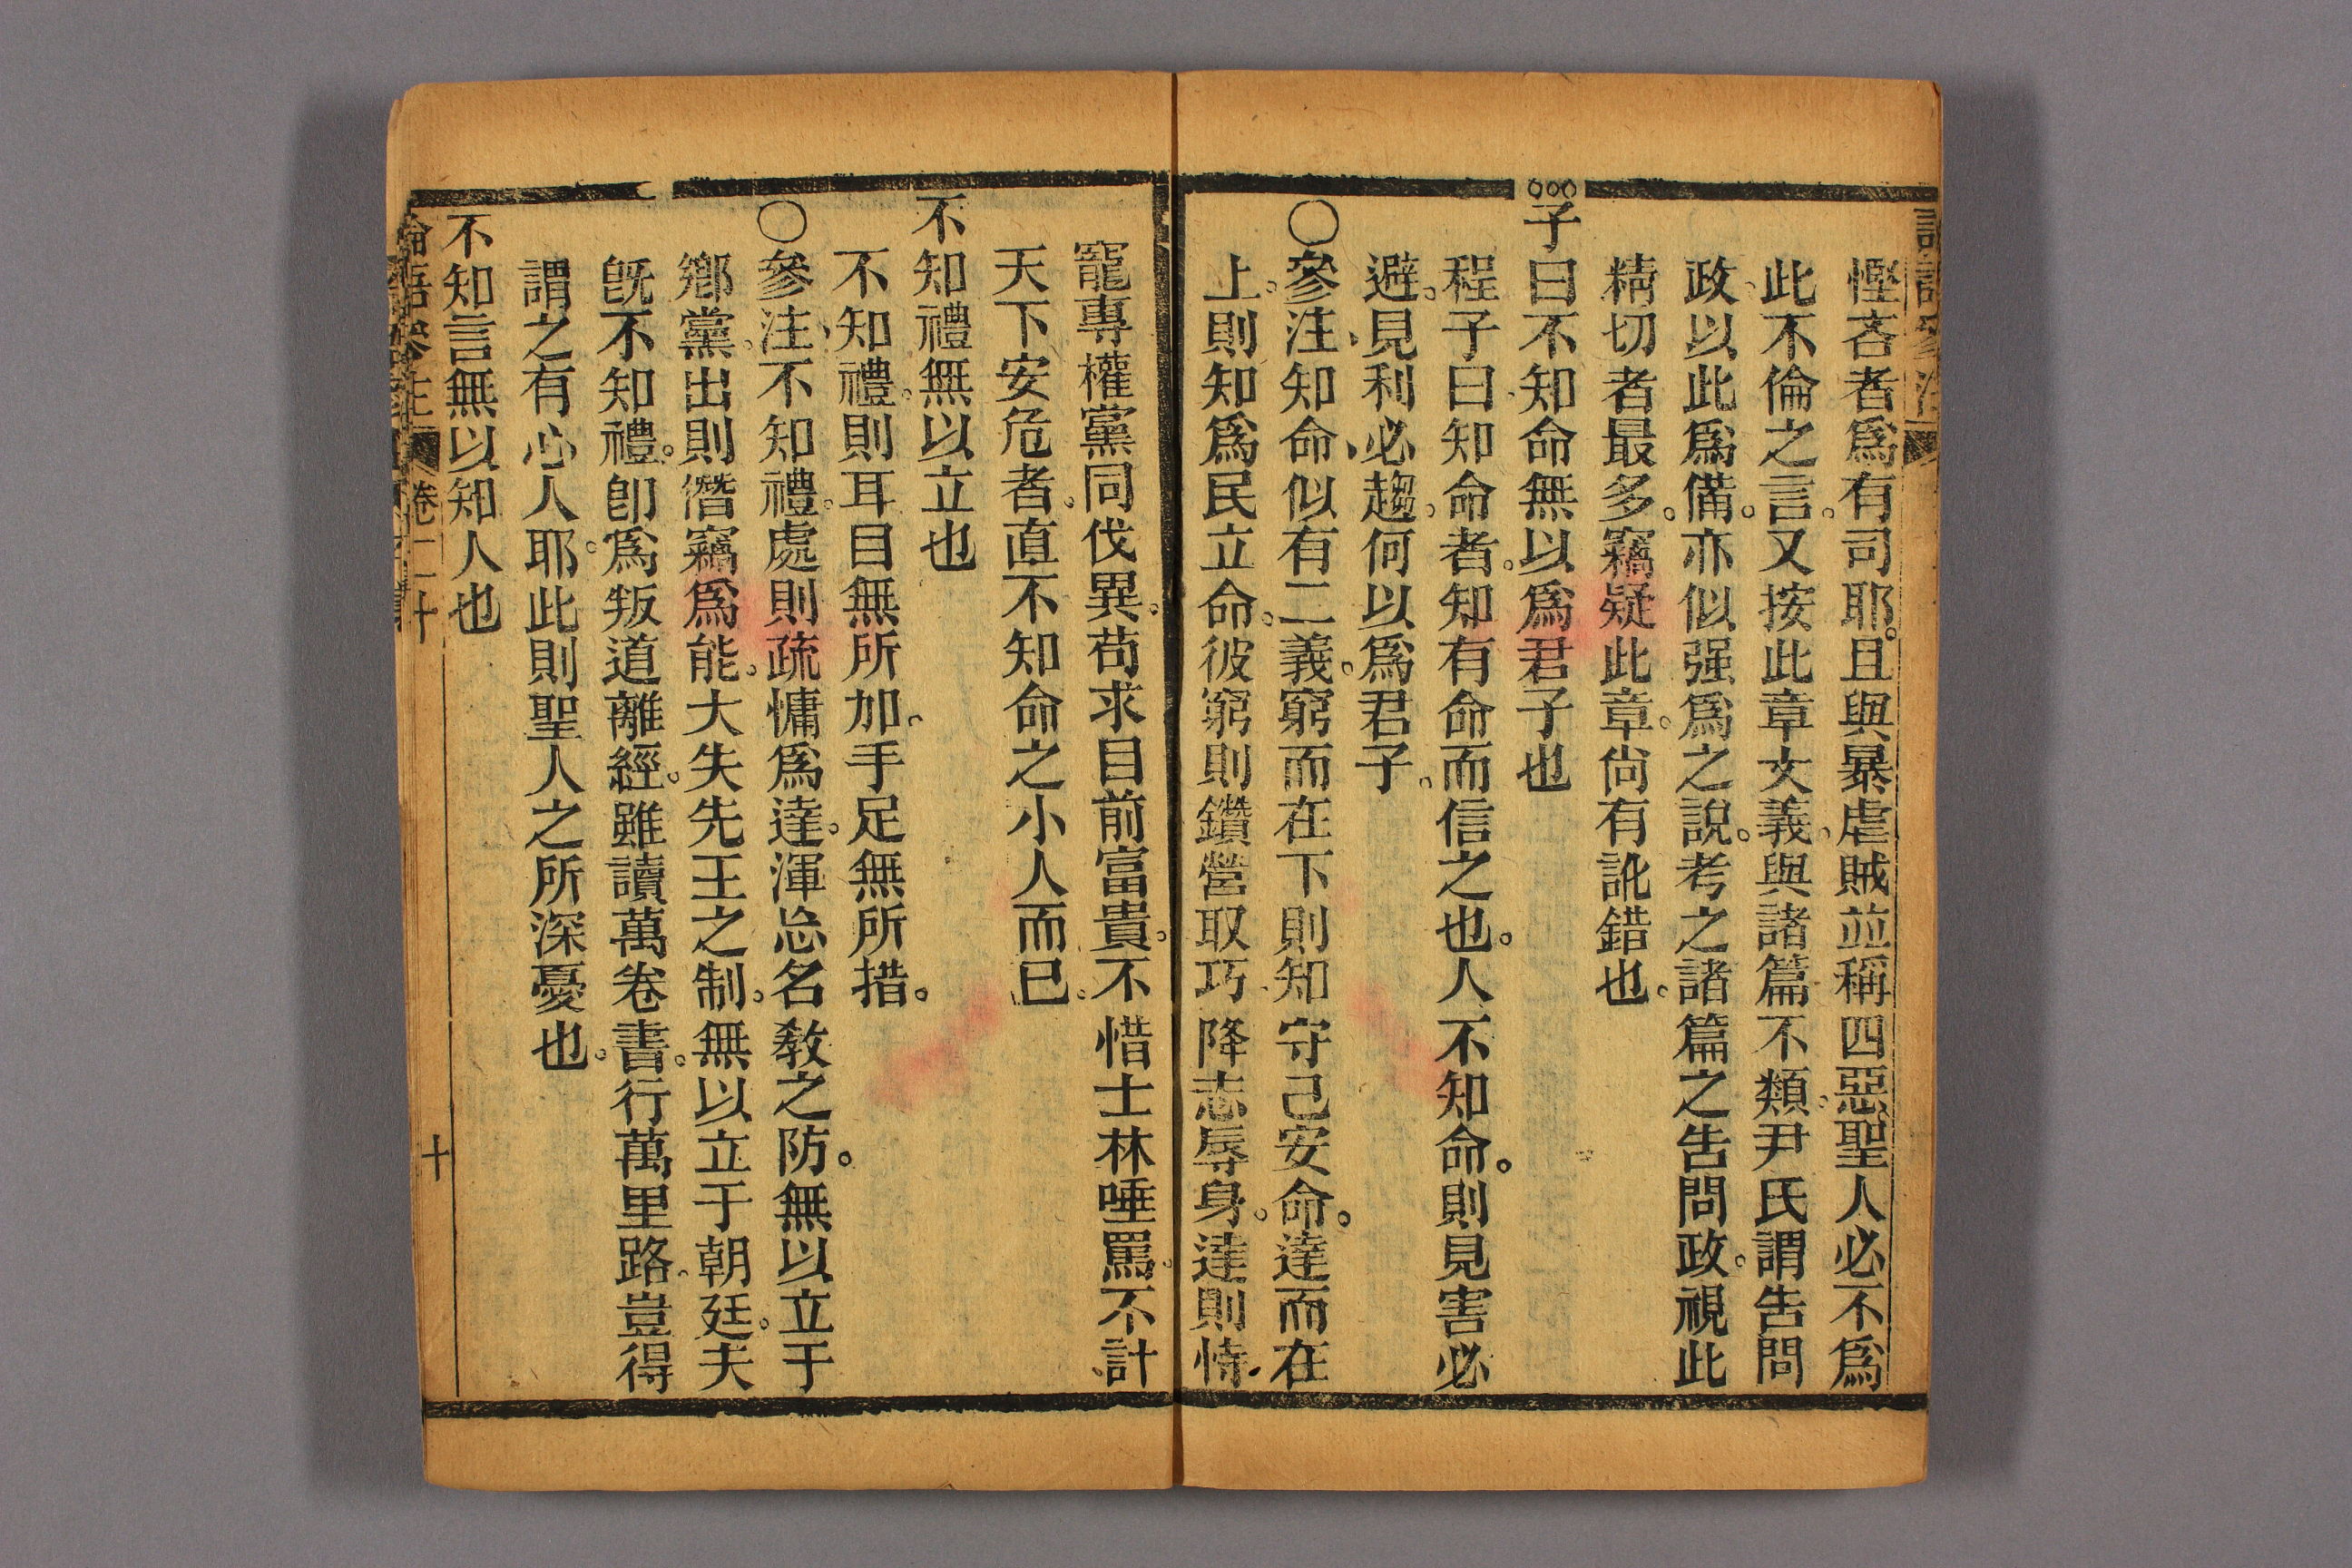 慳吝者爲有司耶。且與暴虐賊並稱四惡。聖人必不爲
此不倫之言。又按此章文義。與諸篇不類。尹氏謂告問
政。以此爲備。亦似强爲之說。考之諸篇之告問政。視此
精切者最多。竊疑此章。尚有訛錯也。
子曰不知命無以爲君子也
程子曰。知命者。知有命而信之也。人不知命。則見害必
避。見利必趨。何以爲君子。
〇參注、知命似有二義。窮而在下則知守己安命。達而在
上。則知爲民立命。彼窮則鑽營取巧。降志辱身。達則恃
寵專權黨同伐異。苟求目前富貴。不惜士林唾罵。不計
天下安危者。直不知命之小人而已。
不知禮無以立也
不知禮。則耳目無所加。手足無所措。
〇參注、不知禮。處則疏慵爲達。渾忘名教之防。無以立于
鄉黨。出則僭竊爲能。大失先王之制。無以立于朝廷。夫
旣不知禮。卽爲叛道離經。雖讀萬卷書。行萬里路。豈得
謂之有心人耶。此則聖人之所深憂也。
不知言無以知人也
論語參注 卷二十 十